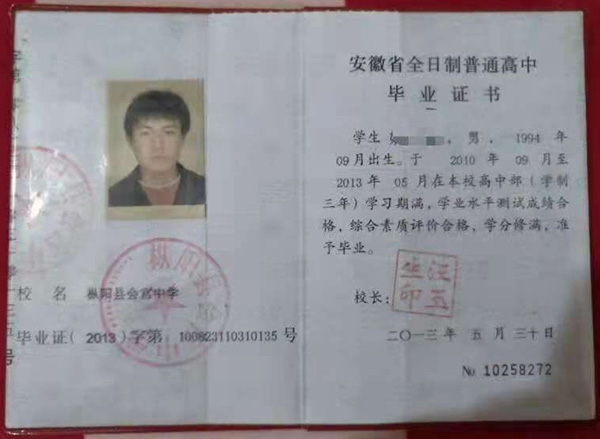 校 名 枞阳县会宫中学
毕业证( 2013 )字第 100823110310135 号
安徽省全日制普通高中
毕 业 证 书
学生 , 男 , 1994 年
09 月出生。于 2010 年 09 月至
2013 年 05 月在本校高中部(学制
三年)学习期满,学业水平测试成绩合
格,综合素质评价合格,学分修满,准
予毕业。
校长:
二〇一三年 五 月 三十日
№ 10258272